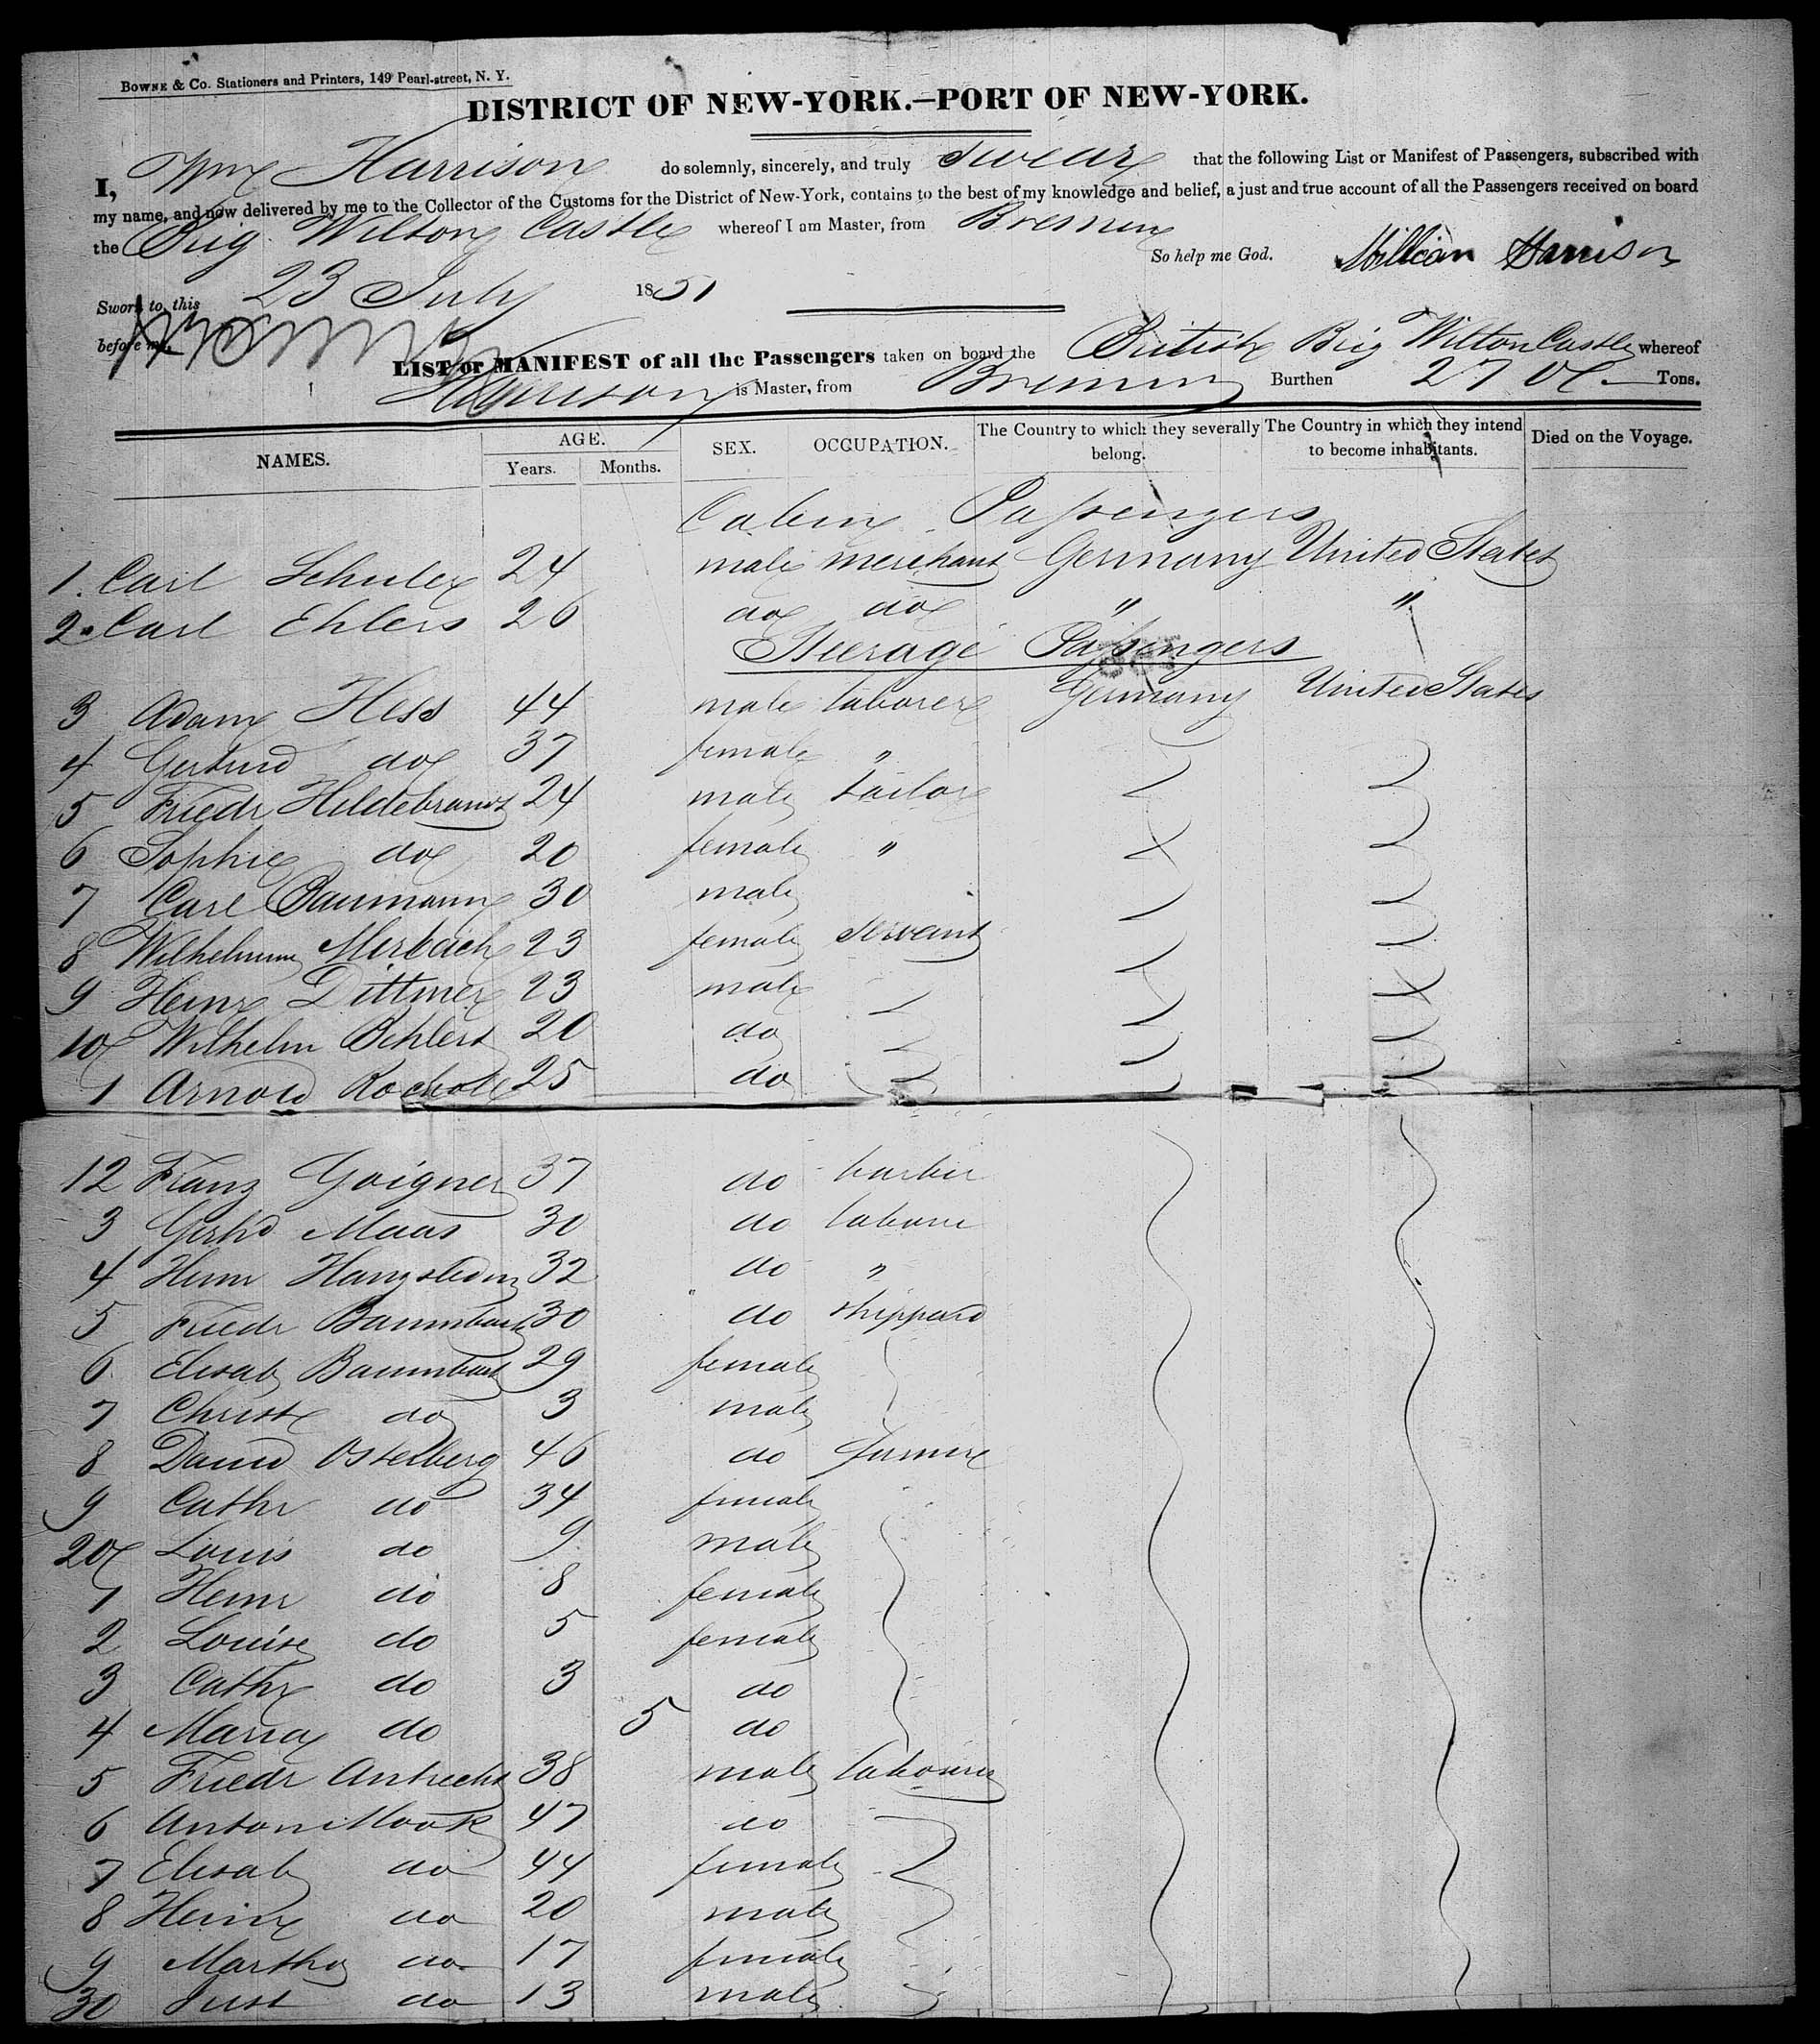 BOWNE & Co. Stationers and Printers, 149 Pearl-street, N. Y.
DISTRICT OF NEW-YORK.—PORT OF NEW-YORK.
I, Wm Harrison do solemnly, sincerely, and truly swear that the following List or Manifest of Passengers, subscribed with
my name, and now delivered by me to the Collector of the Customs for the District of New-York, contains to the best of my knowledge and belief, a just and true account of all the Passengers received on board
the Brig Wilton Castle whereof I am Master, from Bremen
So help me God. William Harrison
Sworn to, this 23 July 1851
before me,
LIST or MANIFEST of all the Passengers taken on board the British Brig Wilton Castle whereof
Harrison is Master, from Bremen Burthen Tons.
NAMES. AGE. Years. Months. SEX. OCCUPATION. The Country to which they severally belong. The Country in which they intend to become inhabitants. Died on the Voyage.
Cabin Passengers
1. Carl Schuler 24 male merchant Germany United States
2. Carl Ehlers 26 do do " "
Steerage Passengers
3 Adam Hess 44 male laborer Germany United States
4 Gertrud do 37 female "
5 Friedr Hildebrandt 24 male tailor
6 Sophie do 20 female "
7 Carl Baumann 30 male
8 Merbach 23 female servant
9 Heinr Dittmer 23 male
10 Wilhelm 20 do
1 Arnold 25 do
12 Franz 37 do barber
3 Maas 30 do
4 32 do "
5 Friedr 30 do shippard
6 Elisab 29 female
7 do 3 male
8 David Osterberg 46 do farmer
9 Cathr do 34 female
20 Louis do 9 male
1 Heinr do 8 female
2 Louise do 5 female
3 Cathr do 3 do
4 Maria do 5 do
5 Friedr 38 male
6 Anton Mook 47 do
7 Elisab do 44 female
8 Heinr do 20 male
9 Martha do 17 female
30 Just do 13 male